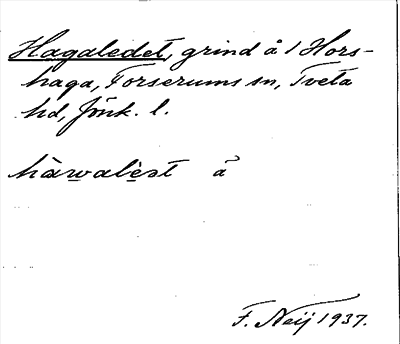 Hagaledet, grind å 1 Hors-
haga, Forserums sn, Tveta
hd, Jönk. l.
hàwalèst å
F. Neij 1937.